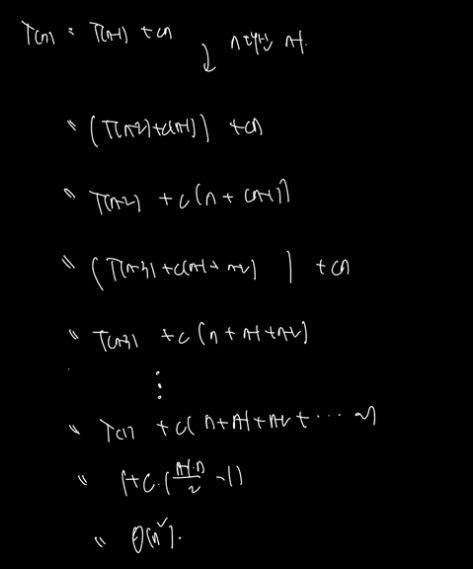 T(n) = T(n-1) + cn
n 대신 n-1.
= (T(n-2)+c(n-1)) + cn
= T(n-2) + c(n + (n-1))
= (T(n-3) + c(n-1 + n-2) ) + cn
= T(n-3) + c(n + n-1 + n-2)
⋮
= T(1) + c( n + n-1 + n-2 + ··· 2)
= 1 + c·(\frac{(n+1)·n}{2} - 1)
= Θ(n²).